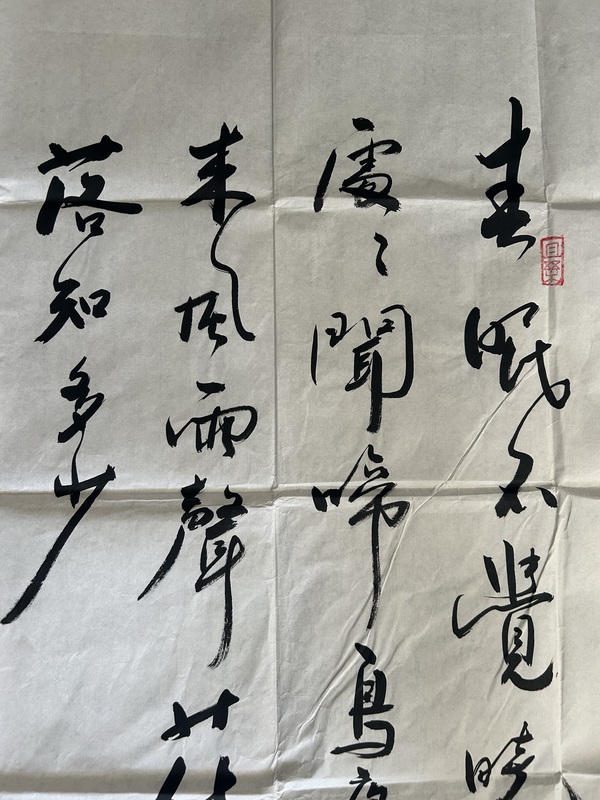 春眠不覺曉
處々聞啼鳥
来風雨聲花
落知多少